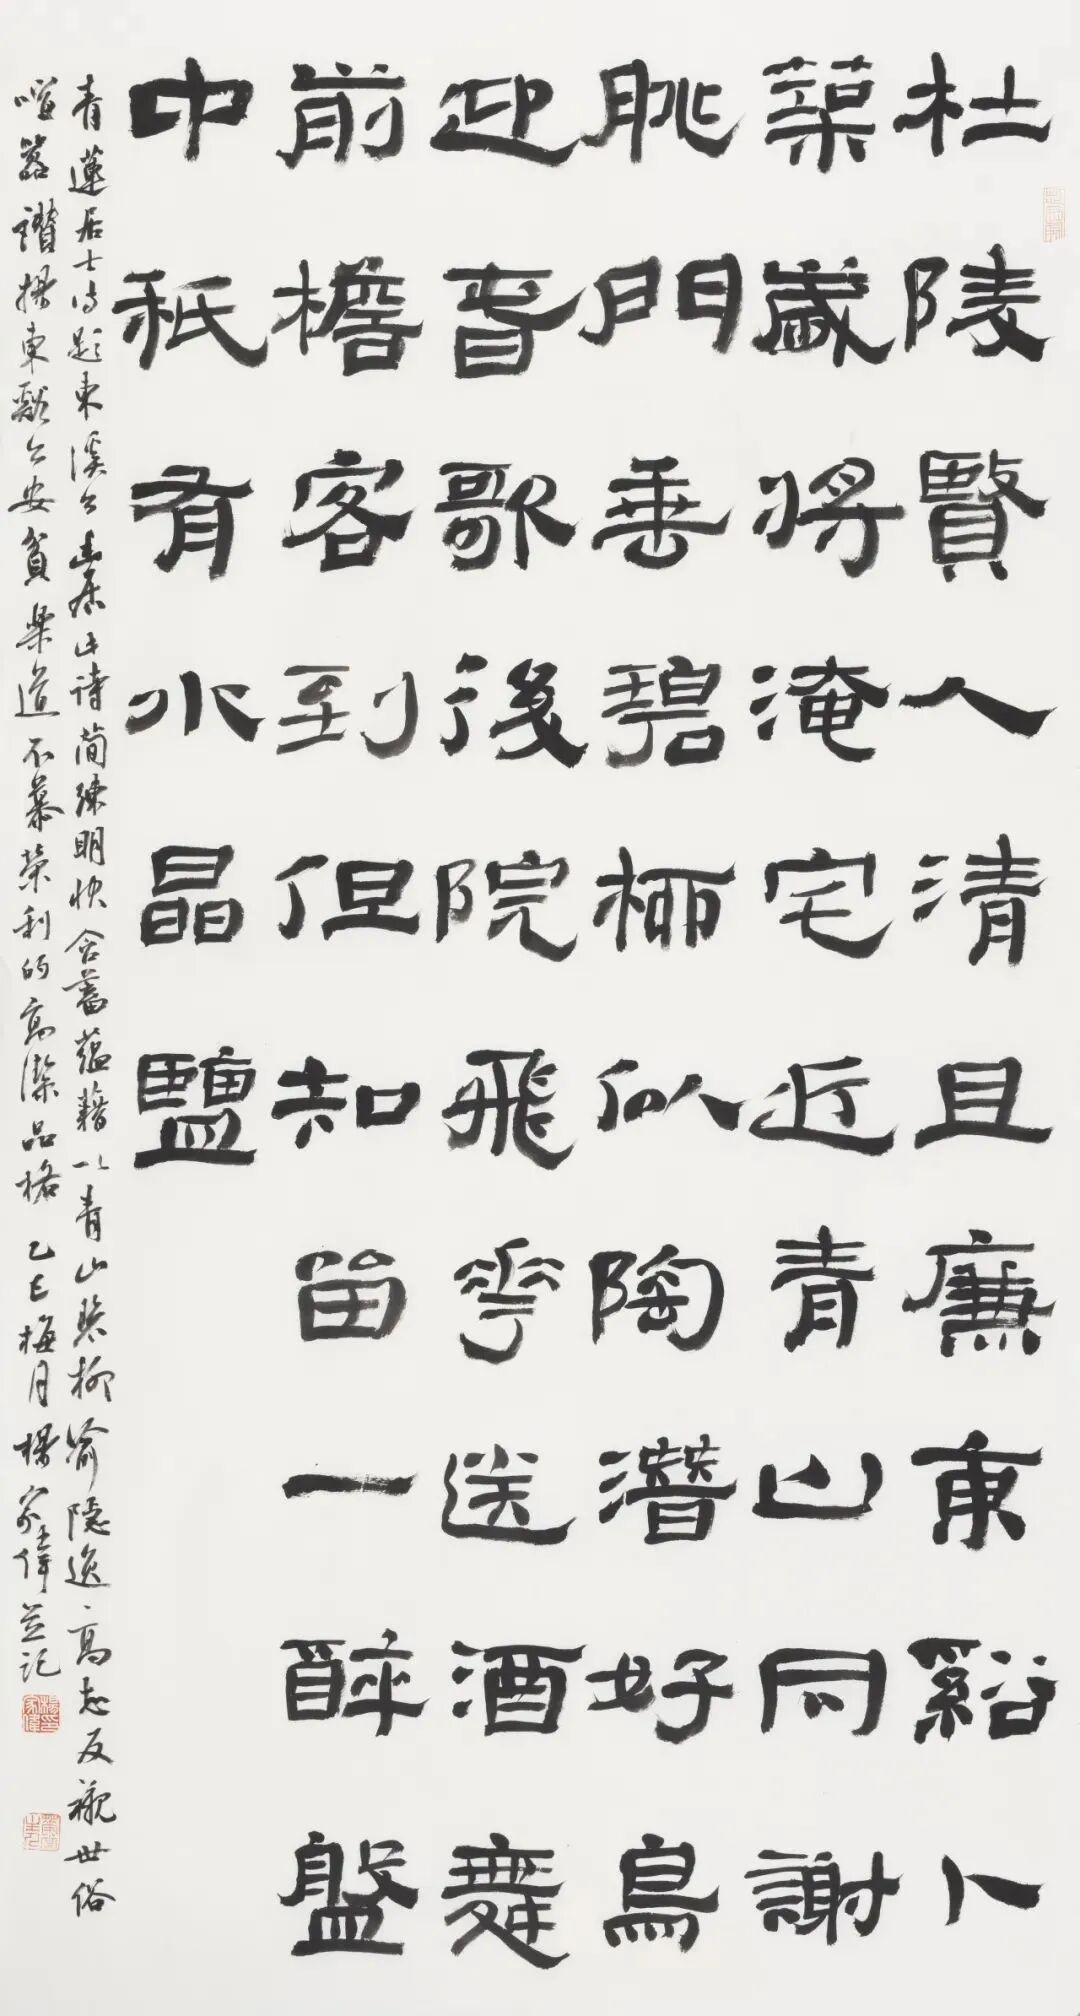 杜陵賢人清且廉東谿卜
築歲將淹宅近青山同謝
朓門垂碧柳似陶潛好鳥
迎春歌後院飛花送酒舞
前檐客到但知留一醉盤
中秖有水晶鹽
青蓮居士詩題東溪公幽居此詩簡練明快含蓄蘊藉以青山碧柳喻隱逸高志反襯世俗
喧囂讚揚東谿公安貧樂道不慕榮利的高潔品格乙巳梅月楊家偉並記